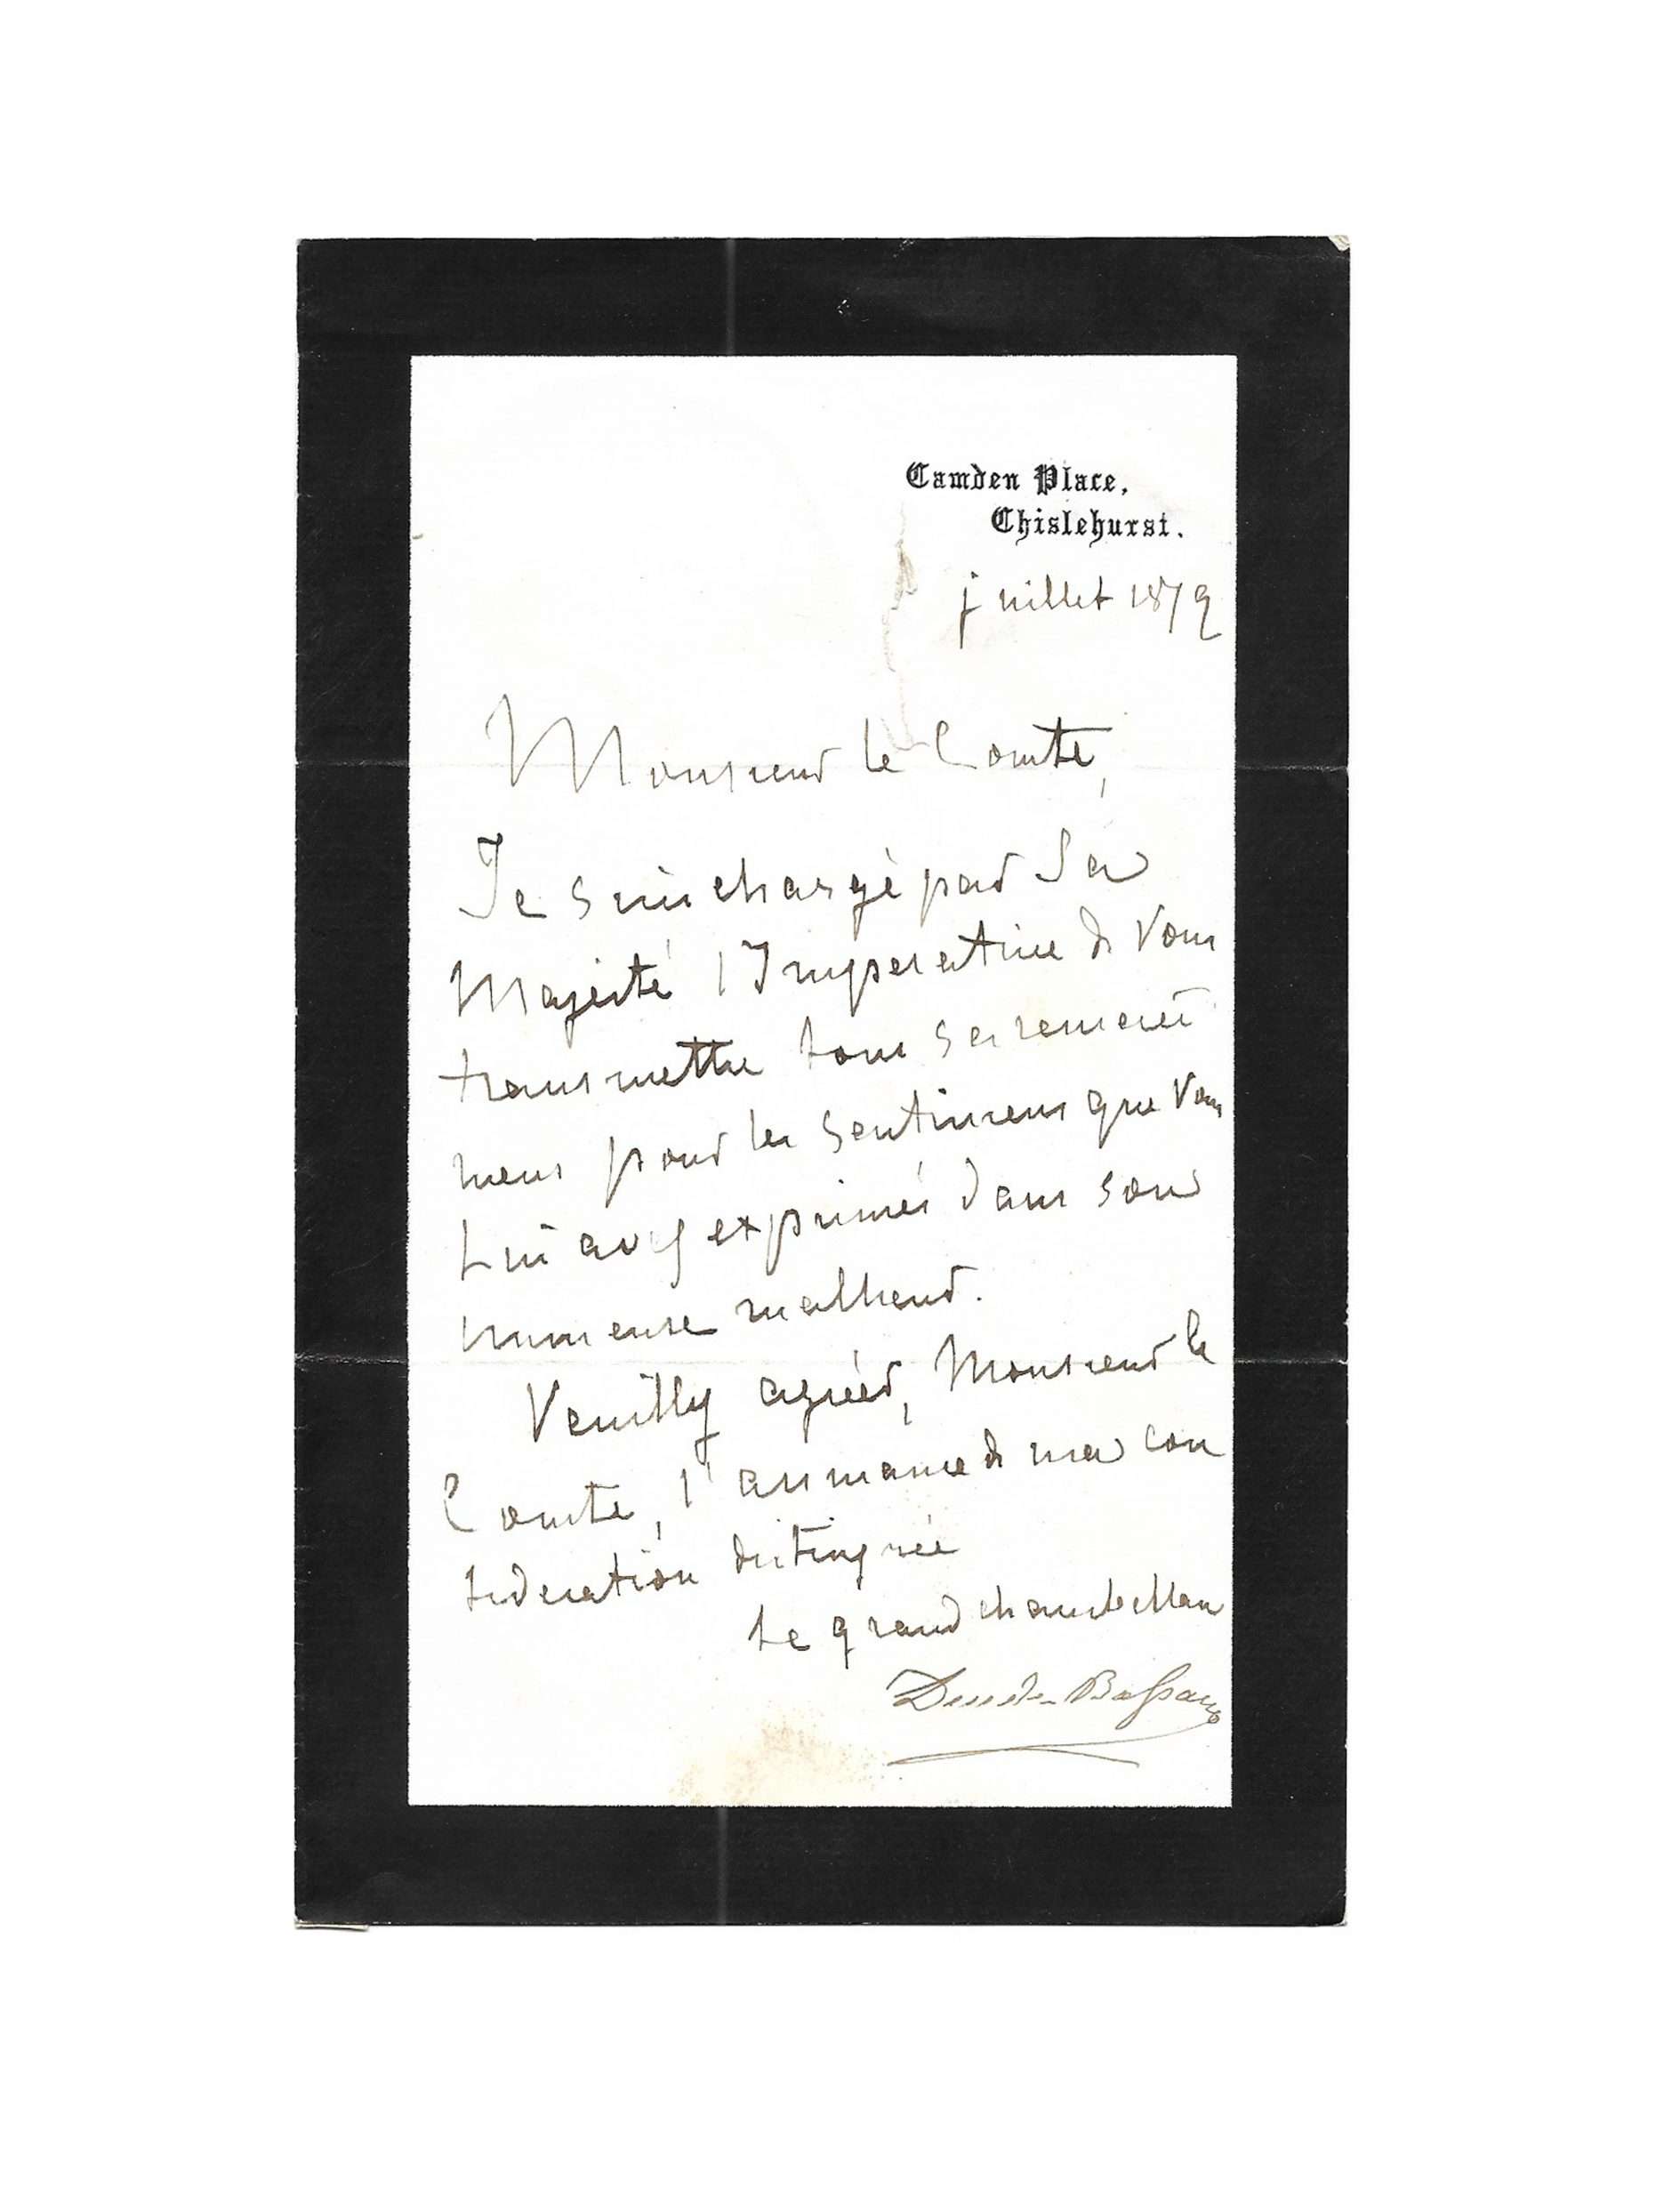 Camden Place,
Chislehurst.
juillet 1879
Monsieur le Comte,
Je suis chargé par Sa
Majesté l'Imperatrice de Vous
transmettre tous ses remercie
mens pour les sentimens que Vous
Lui avez exprimés dans son
immense malheur.
Veuillez agréer, Monsieur le
Comte, l'assurance de ma con
sideration distinguée
Le grand chambellan
Duc de Bassano